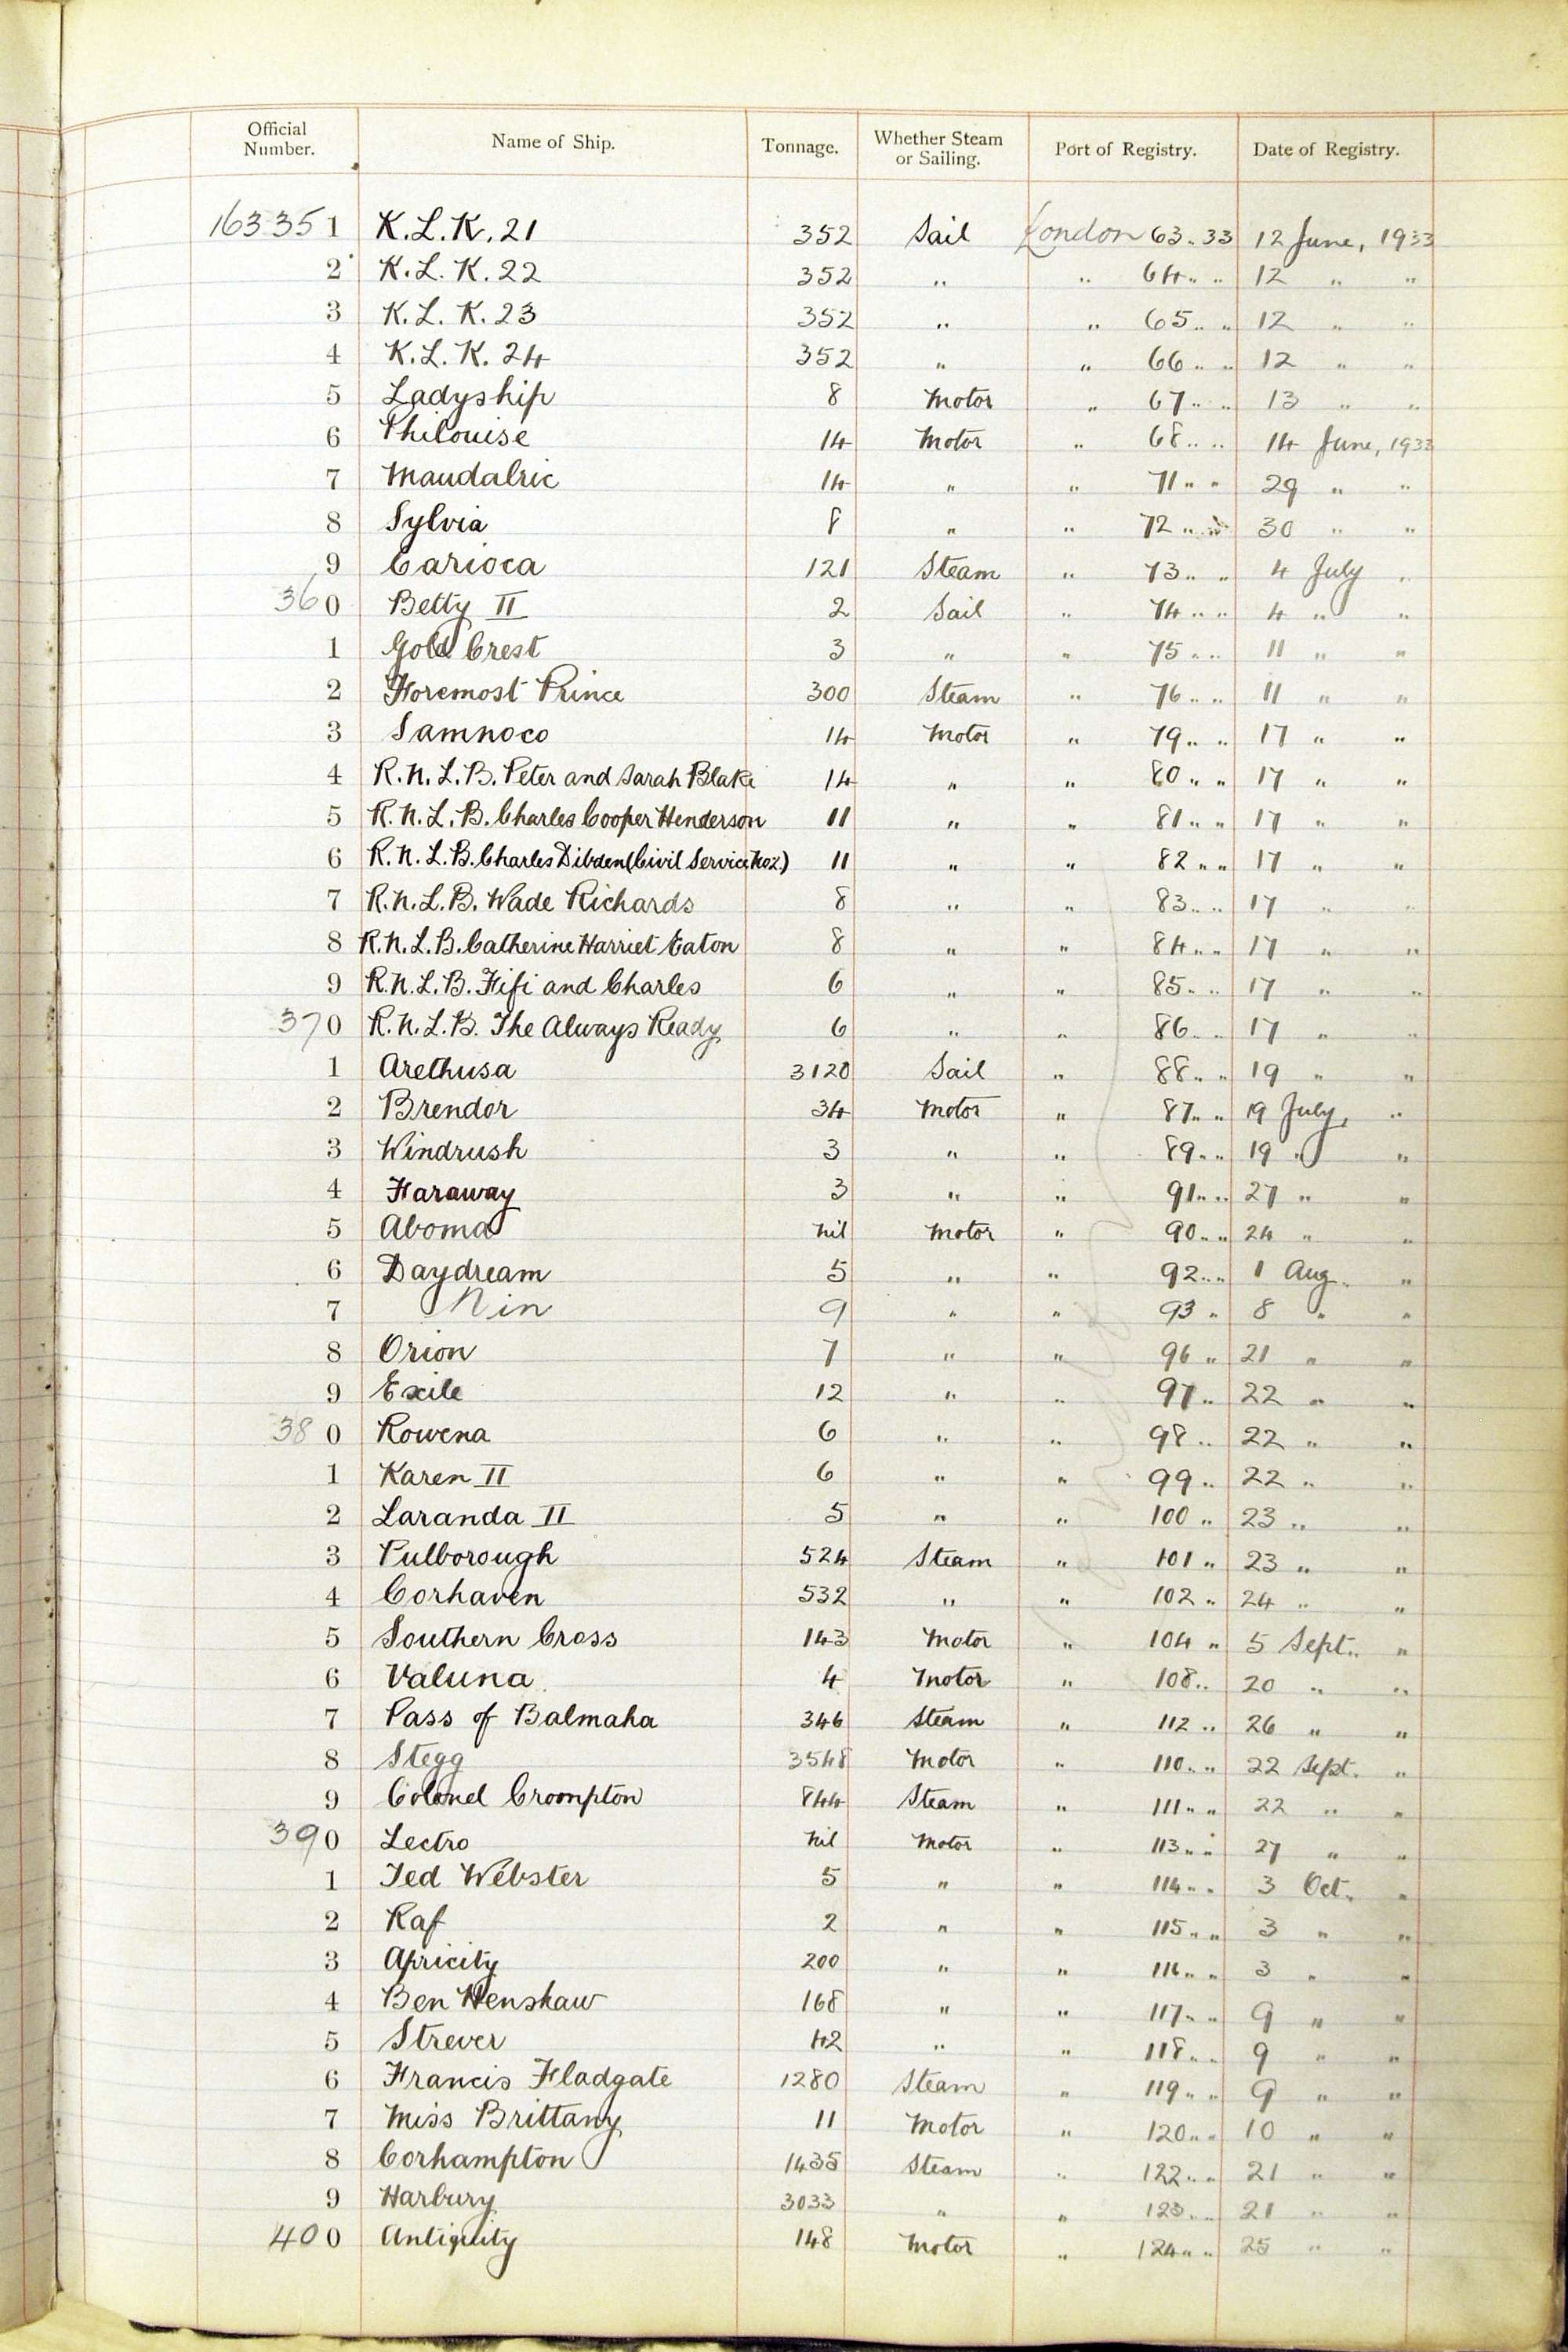 Official Number. Name of Ship. Tonnage. Whether Steam or Sailing. Port of Registry. Date of Registry.
163351 K.L.K. 21 352 Sail London 63 .. 33 12 June, 1933
2 K.L.K. 22 352 " " 64 " " 12 " "
3 K.L.K. 23 352 " " 65 " " 12 " "
4 K.L.K. 24 352 " " 66 " " 12 " "
5 Ladyship 8 Motor " 67 " " 13 " "
6 Philouise 14 Motor " 68 " " 14 June, 1933
7 Maudalric 14 " " 71 " " 29 " "
8 Sylvia 8 " " 72 " " 30 " "
9 Carioca 121 Steam " 73 " " 4 July "
360 Betty II 2 Sail " 74 " " 4 " "
1 Gold Crest 3 " " 75 " " 11 " "
2 Foremost Prince 300 Steam " 76 " " 11 " "
3 Samnoco 14 Motor " 79 " " 17 " "
4 R.N.L.B. Peter and Sarah Blake 14 " " 80 " " 17 " "
5 R.N.L.B. Charles Cooper Henderson 11 " " 81 " " 17 " "
6 R.N.L.B. Charles Dibden (Civil Service No2.) 11 " " 82 " " 17 " "
7 R.N.L.B. Wade Richards 8 " " 83 " " 17 " "
8 R.N.L.B. Catherine Harriet Eaton 8 " " 84 " " 17 " "
9 R.N.L.B. Fifi and Charles 6 " " 85 " " 17 " "
370 R.N.L.B. The Always Ready 6 " " 86 " " 17 " "
1 Arethusa 3120 Sail " 88 " " 19 " "
2 Brendor 34 Motor " 87 " " 19 July, "
3 Windrush 3 " " 89 " " 19 " "
4 Faraway 3 " " 91 " " 27 " "
5 Aboma nil Motor " 90 " " 24 " "
6 Daydream 5 " " 92 " " 1 Aug. "
7 Nin 9 " " 93 " 8 " "
8 Orion 7 " " 96 " 21 " "
9 Exile 12 " " 97 " 22 " "
380 Rowena 6 " " 98 " 22 " "
1 Karen II 6 " " 99 " 22 " "
2 Laranda II 5 " " 100 " 23 " "
3 Pulborough 524 Steam " 101 " 23 " "
4 Corhaven 532 " " 102 " 24 " "
5 Southern Cross 143 Motor " 104 " 5 Sept. "
6 Valuna 4 Motor " 108 " 20 " "
7 Pass of Balmaha 346 Steam " 112 " 26 " "
8 Stegg 3548 Motor " 110 " " 22 Sept. "
9 Colonel Crompton 844 Steam " 111 " " 22 " "
390 Lectro nil Motor " 113 " " 27 " "
1 Ted Webster 5 " " 114 " " 3 Oct. "
2 Raf 2 " " 115 " " 3 " "
3 Apricity 200 " " 116 " " 3 " "
4 Ben Henshaw 168 " " 117 " " 9 " "
5 Strever 42 " " 118 " " 9 " "
6 Francis Fladgate 1280 Steam " 119 " " 9 " "
7 Miss Brittany 11 Motor " 120 " " 10 " "
8 Corhampton 1435 Steam " 122 " " 21 " "
9 Harbury 3033 " " 123 " " 21 " "
400 Antiquity 148 Motor " 124 " " 25 " "